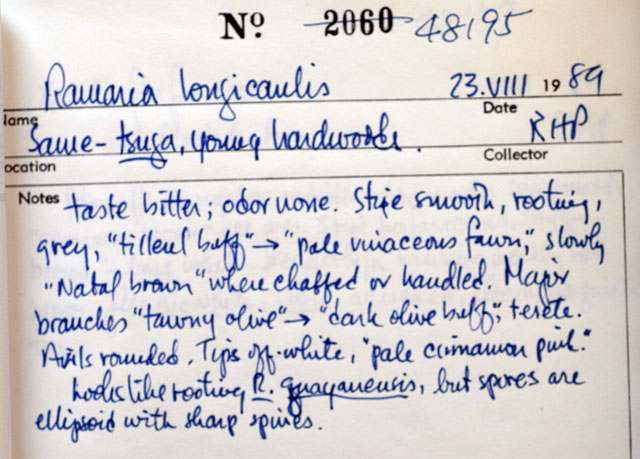 Nº 2060 48195
Ramaria longicaulis 23.VIII 1989
Name Date
Same - tsuga, young hardwoods. RHP
ocation Collector
Notes taste bitter; odor none. Stipe smooth, rooting,
grey, "tilleul buff" → "pale vinaceous fawn," slowly
"Natal brown" where chaffed or handled. Major
branches "tawny olive" → "dark olive buff"; terete.
Axils rounded. Tips off-white, "pale cinnamon pink."
Looks like rooting R. guayanensis, but spores are
ellipsoid with sharp spines.